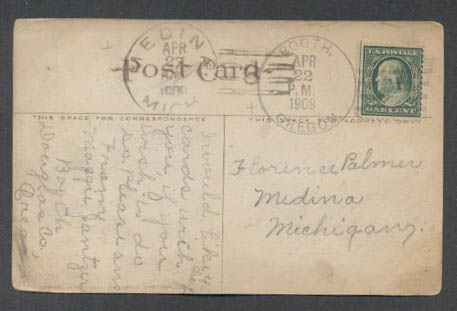 EDIN
APR
27
MICH
BOOTH,
APR
22
P.M.
1909
OREGON
U.S. POSTAGE
ONE CENT
Post Card
THIS SPACE FOR CORRESPONDENCE
THIS SPACE FOR ADDRESS ONLY
I would like ex
cards with
you if you
wish to do
so. Please ans
From
Maggie Jantzer
Booth
Douglas Co.
Oregon
Florence Palmer
Medina
Michigan,